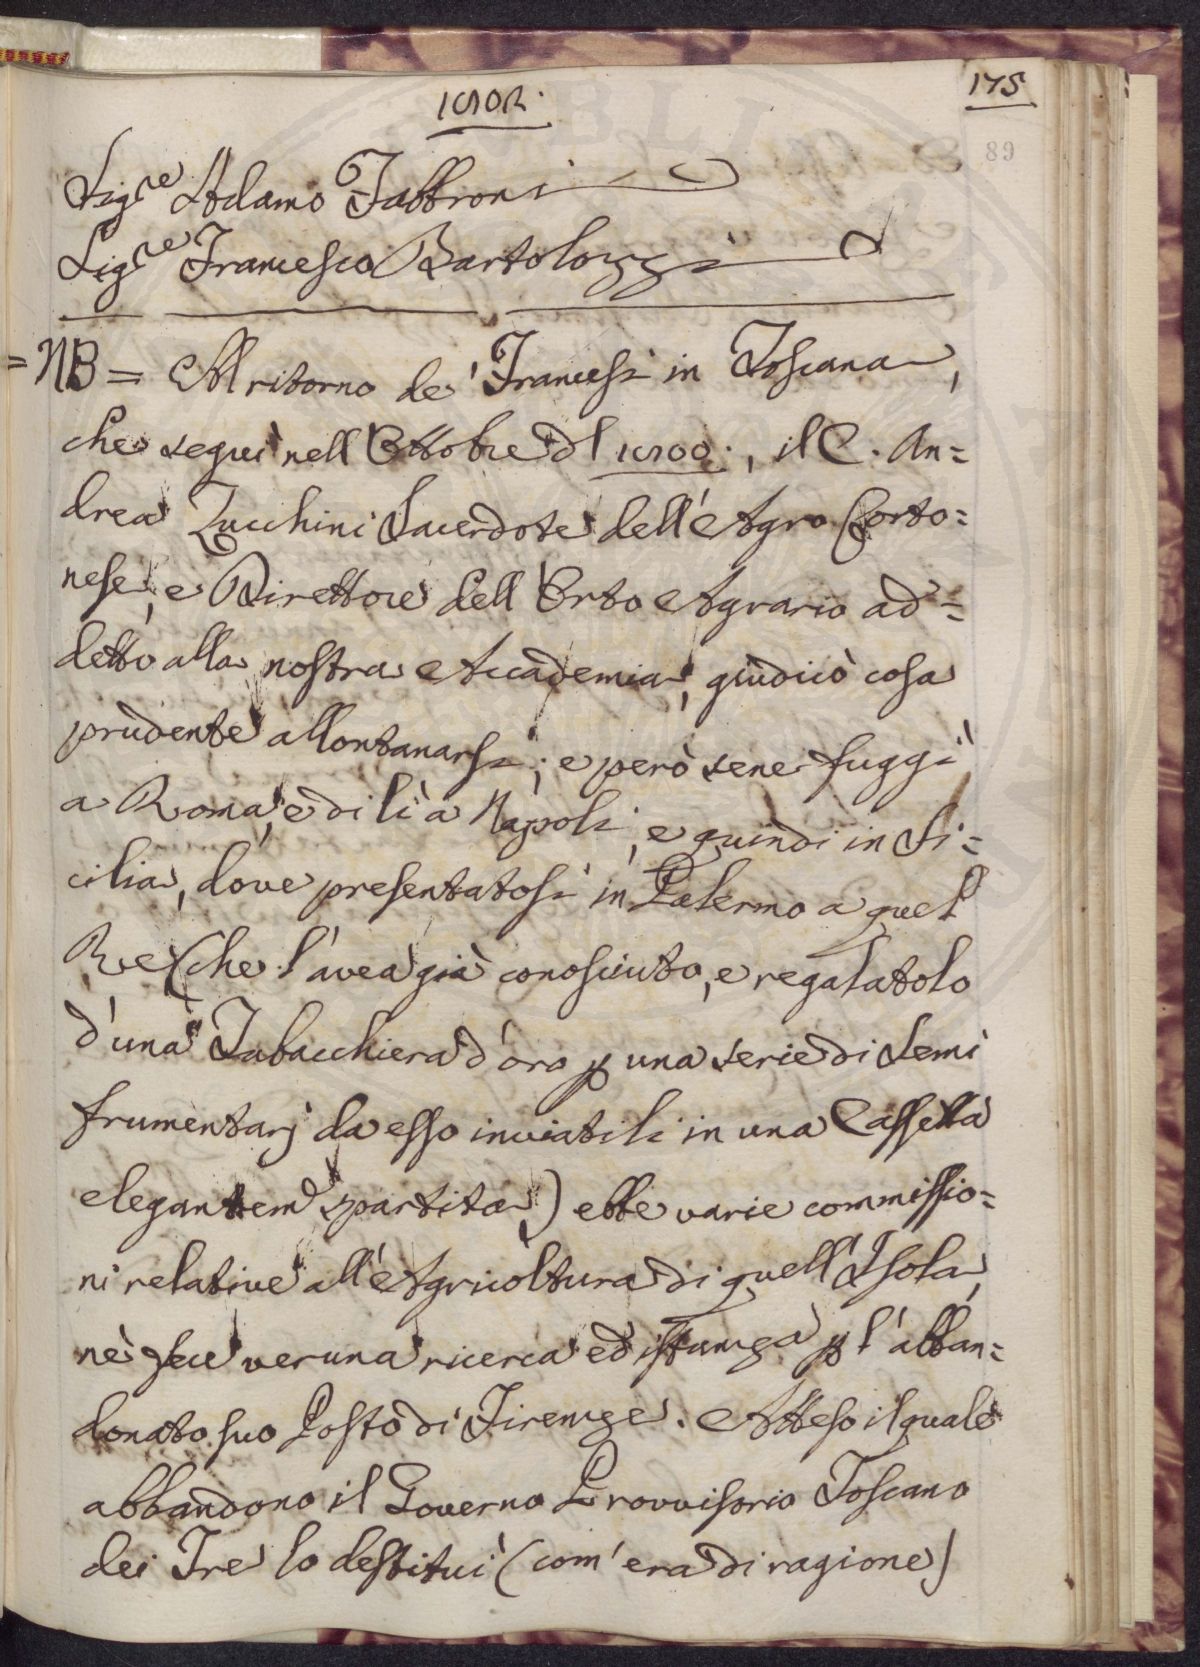 175
1802.
89
Sig.re Adamo Fabbroni
Sig.re Francesco Bartolozzi
= NB = Al ritorno de' Francesi in Toscana,
che seguì nell'Ottobre del 1800., il C. An=
drea Zucchini Sacerdote dell'Agro Corto=
nese, e Direttore dell'Orto Agrario ad=
detto alla nostra Accademia, giudicò cosa
prudente allontanarsi; e però sene fuggì
a Roma, e di lì a Napoli, e quindi in Si=
cilia, dove presentatosi in Palermo a quel
Re (che l'avea già conosciuto, e regalatolo
d'una Tabacchiera d'oro p una serie di Semi
frumentarj da esso inviatili in una Cassetta
elegantem.e spartita) ebbe varie commissio=
ni relative all'Agricoltura di quell'Isola,
nè fece veruna ricerca ed istanza p l'abban=
donato suo Posto di Firenze. Atteso il quale
abbandono il Governo Provvisorio Toscano
dei Tre lo destituì (com'era di ragione)